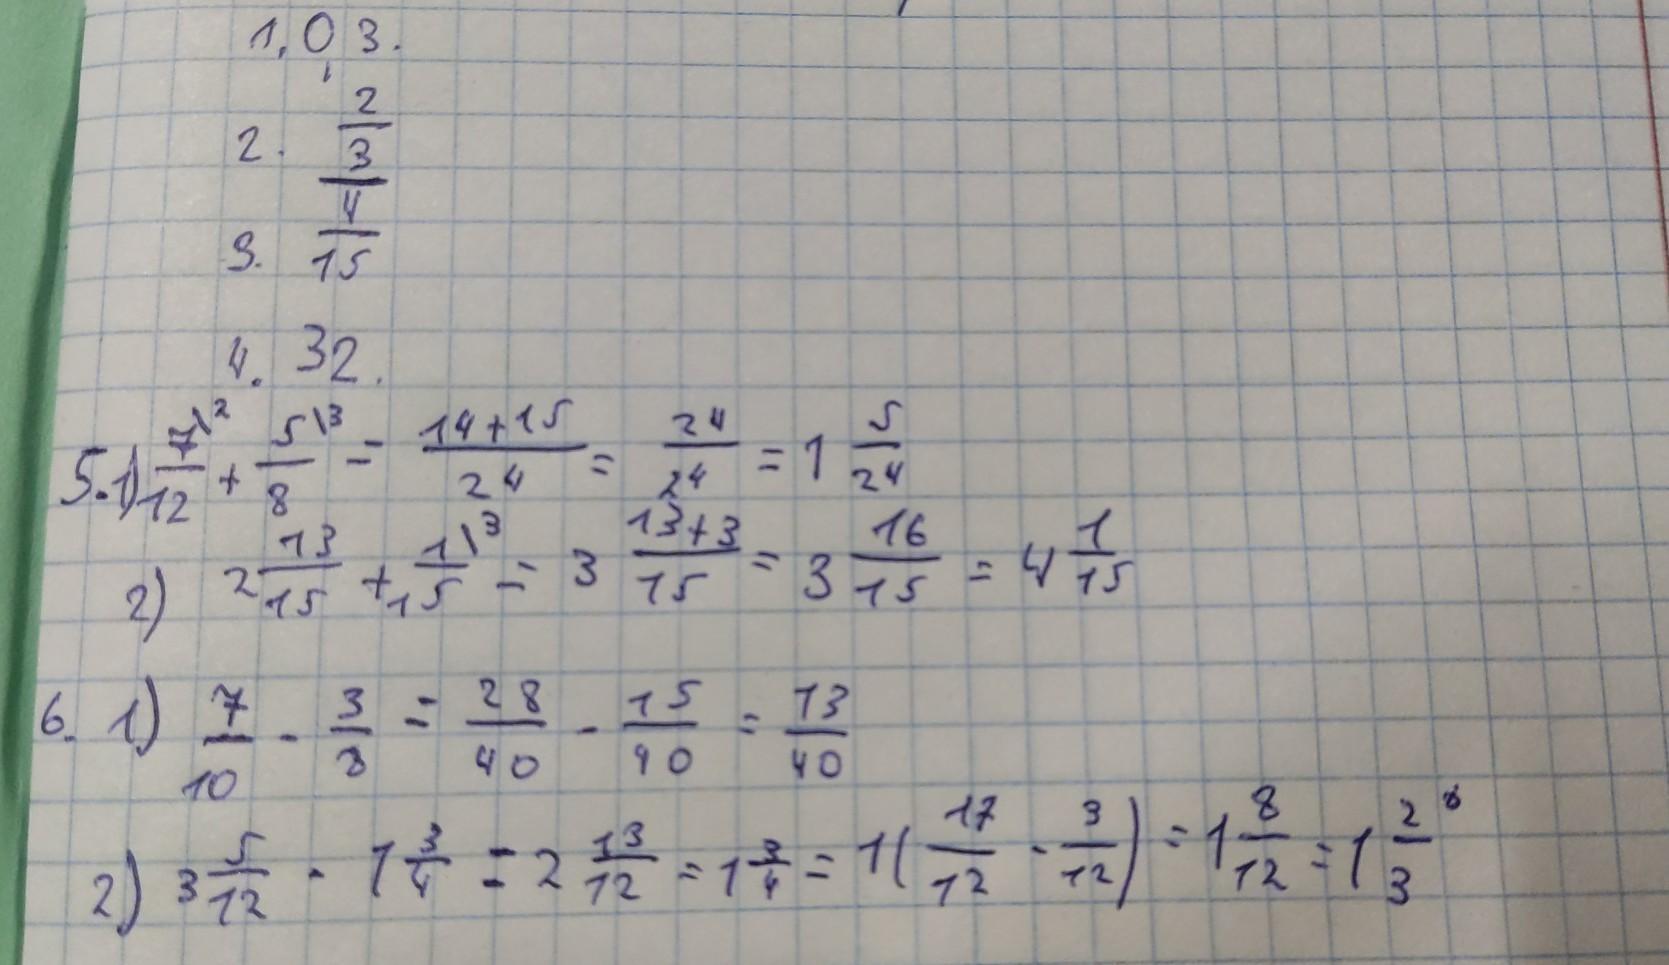 1. 03.
2. 2/3
3. 4/15
4. 32.
5. 1) 7\2/12 + 5\3/8 = 14+15/24 = 24/24 = 1 5/24
2) 2 13/15 + 1\3/15 = 3 13+3/15 = 3 16/15 = 4 1/15
6. 1) 7/10 - 3/8 = 28/40 - 15/40 = 13/40
2) 3 5/12 - 1 3/4 = 2 13/12 = 1 3/4 = 1( 17/12 - 3/12 ) = 1 8/12 = 1 2/3